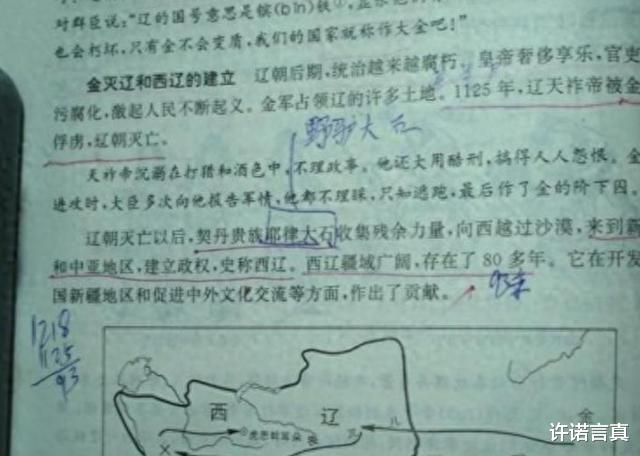 对群臣说:“辽的国号意思是镔(bīn)铁①,
也会朽坏,只有金不会变质,我们的国家就称作大金吧!”
金灭辽和西辽的建立 辽朝后期,统治越来越腐朽。皇帝奢侈享乐,官吏
污腐化,激起人民不断起义。金军占领辽的许多土地。1125年,辽天祚帝被金
俘虏,辽朝灭亡。
大石
天祚帝沉溺在打猎和酒色中,不理政事。他还大用酷刑,搞得人人怨恨。金
进攻时,大臣多次向他报告军情,他都不理睬,只知逃跑,最后作了金的阶下囚。
辽朝灭亡以后,契丹贵族耶律大石收集残余力量,向西越过沙漠,来到新
和中亚地区,建立政权,史称西辽。西辽疆域广阔,存在了80多年。它在开发
国新疆地区和促进中外文化交流等方面,作出了贡献。
1218
1125
93
西 辽 金
虎思斡耳朵
许诺言真